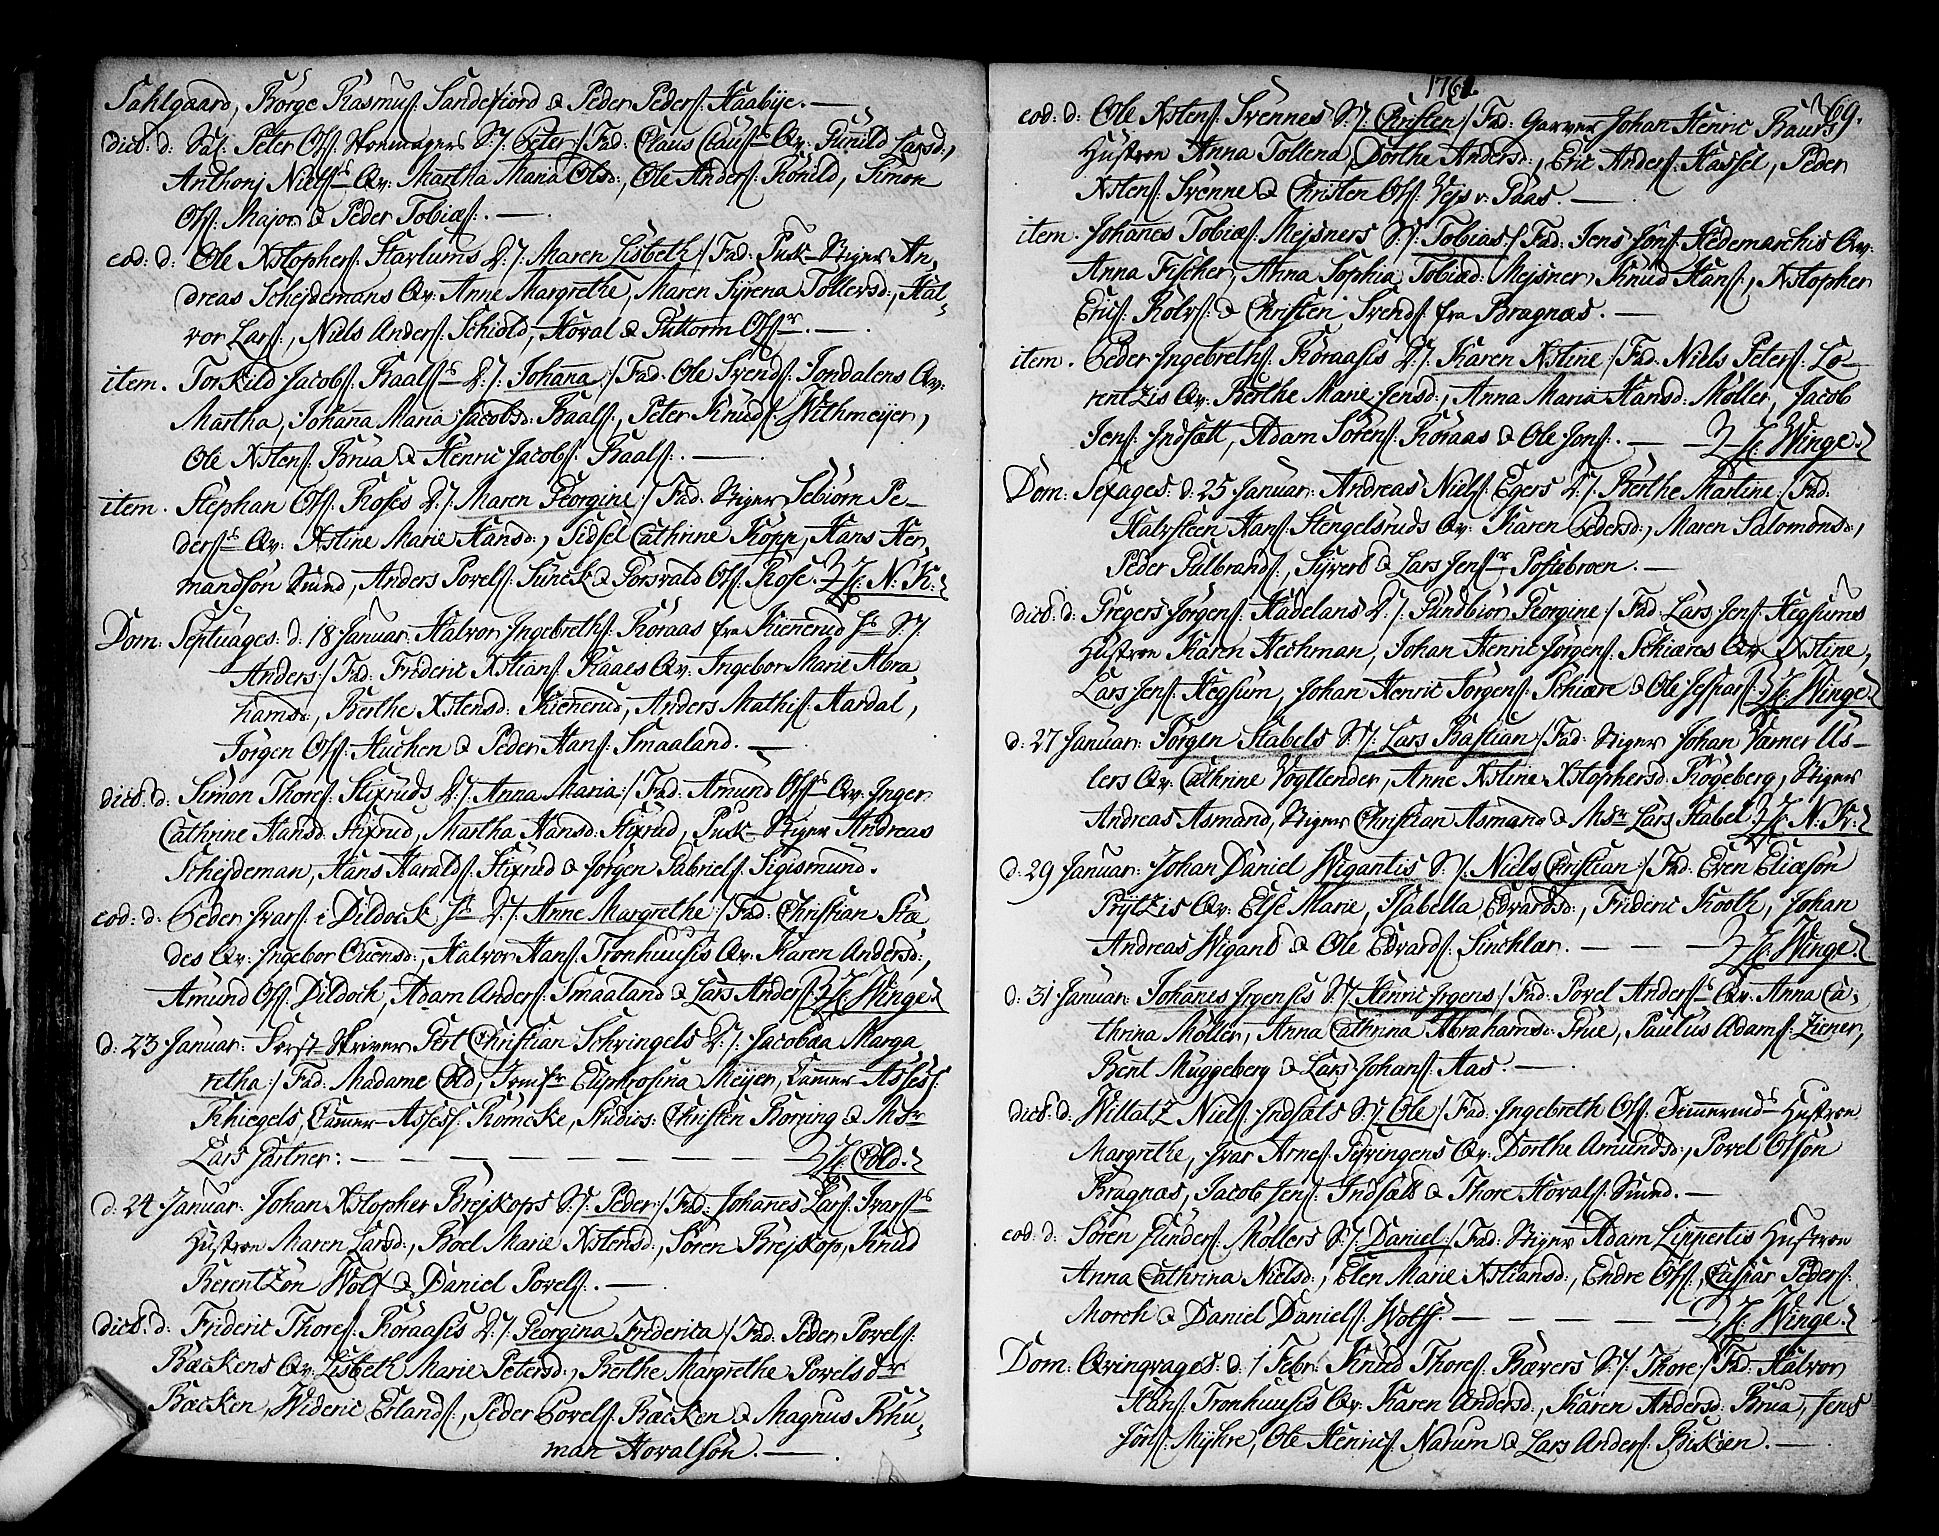 Sahlgaard, Börge Rasmuſ: Sandefiord & Peder Pederſ: Haabÿe. —
dict: d: Sal: Peter Olſ: S:/: Peter:/ Fad: Claus Clauſ:s Qv: Gunild Larsd:,
Anthonj Nielſ:s Qv: Martha Maria Olsd:, Ole Anderſ: Ronild, Simon
Olſ: Major & Peder Tobiæſ: —
eod: d: Ole Xstopherſ: Starlums D:/: Maren Lisbeth:/ Fad: Puk-Stiger An,
dreas Schejdemans Qv: Anne Margrethe, Maren Sÿrena Tollersd:, Hal,
vor Larſ:, Niels Anderſ: Schiold, Hoval & Guttorm Olſ:r —
item. Torkild Jacobſ: Raalſ:s D:/: Johana:/ Fad: Ole Svendſ: Jondalens Qv:
Martha, Johana Maria Jacobsd: Raalſ:, Peter Knudſ: Withmeÿer,
Ole Xstenſ: Brua & Henric Jacobſ: Raalſ: —
item. Stephan Olſ: Roses D:/: Maren Georgine:/ Fad: Stiger Sebiörn Pe-
derſ:s Qv: Xstine Marie Hansd:, Sidsel Cathrine Kopp, Hans Her,
mandsön Smind, Anders Povelſ: Funck & Porsvald Olſ: Rose. H: N: K:
Dom: Septuages: d: 18 Januar: Halvor Ingebrethſ: Koraas fra Kiennerud S:/:
Anders:/ Fad: Frideric Xstianſ: Raaes Qv: Ingebor Marie Abra
hamsd:, Berthe Xstensd: Kiennerud, Anders Mathiſ: Aardal,
Jörgen Olſ: Huchen & Peder Hanſ: Smaaland. —
dict: d: Simon Thoreſ: Stixruds D:/: Anna Maria:/ Fad: Amund Olſ:s Qv: Inger
Cathrine Hansd: Stixrud, Martha Hansd: Stixrud, Puk-Stiger Andreas
Schejdeman, Hans Haraldſ: Stixrud & Jörgen Gabrielſ: Sigismund.
eod: d: Peder Ivarſ: i Dildock D:/: Anne Margrethe:/ Fad: Christian Stæ
des Qv: Ingebor Evensd:, Halvor Hanſ: Tronhuusis Qv: Karen Andersd:,
Amund Olſ: Dildoch, Adam Anderſ: Smaaland & Lars Anderſ: H: Winge.
d: 23 Januar: Forst-Skriver Gert Christian Schvingels D:/: Jacobæa Marga
retha:/ Fad: Madame Cold, Jomfr Euphrosina Meÿer, Cammer-Assess:
Khiegels, Cammer-Assess: Römcke, Studios: Christen Borring & Msr
Lars Gartner: — — — — — — H: Cold.
d: 24 Januar: Johan Xstopher Brejskops S:/: Peder:/ Fad: Johanes Larſ: Ivarſ:s
Hustroe Maren Larsd:, Boel Marie Xstensd:, Sören Brejskop, Knud
Berentzön Wolf & Daniel Povelſ: —
dict: d: Frideric Thoreſ: Koraasis D:/: Georgina Friderica:/ Fad: Peder Povelſ:
Backens Qv: Lisbeth Marie Petersd:, Berthe Margrethe Povelsdr
Backen, Wideric Erlandſ:, Peder Povelſ: Backen & Magnus Bhu,
man Hovalsön. —
1761.
69.
eod: d: Ole Xstenſ: Svennes S:/: Christen:/ Fad: Garver Johan Henric Baurs
Hustroe Anna Tollena, Dorthe Andersd:, Eric Anderſ: Hassel, Peder
Xstenſ: Svenne & Christen Olſ: Vejs v: Paas. —
item. Johanes Tobiæſ: Mejsners S:/: Tobias:/ Fad: Jens Jonſ: Hedemarchis Qv:
Anna Fischer, Anna Sophia Tobiæd: Mejsner, Knud Hanſ:, Xstopher
Ericſ: Rolvſ: & Christen Svendſ: fra Bragnæs. —
item. Peder Ingebrethſ: Koraasis D:/: Karen Xstine:/ Fad: Niels Peterſ: Lo-
rentzis Qv: Berthe Marie Jensd:, Anna Maria Hansd: Möller, Jacob
Jenſ: Indsätt, Adam Sörenſ: Koraas & Ole Jonſ: — H: Winge.
Dom: Sexages: d: 25 Januar: Andreas Nielſ: Egers D:/: Berthe Martine:/ Fad:
Halvsteen Hanſ: Stengelsruds Qv: Karen Pedersd:, Maren Salomonsd:,
Peder Gulbrandſ:, Sÿverd & Lars Jenſ:r Postebroen. —
dict: d: Gregers Jörgenſ: Hadelans D:/: Gundbiör Georgine:/ Fad: Lars Jenſ: Hegsums
Hustroe Karen Hechman, Johan Henric Jörgenſ: Schiæres Qv: Xstine,
Lars Jenſ: Hegsum, Johan Henric Jörgenſ: Schiære & Ole Jesparſ: H: Winge.
d: 27 Januar: Jörgen Stabels S:/: Lars Bastian:/ Fad: Stiger Johan Varner Us-
lers Qv: Cathrine Vogtlender, Anne Xstine Xstophersd: Rögeberg, Stiger
Andreas Asmand, Stiger Christian Asmand & Msr Lars Stabel. H: N: K:
d: 29 Januar: Johan Daniel Wigantis S:/: Niels Christian:/ Fad: Even Eliæsön
Prÿtzis Qv: Else Marie, Isabella Edvardsd:, Frideric Kooth, Johan
Andreas Wigand & Ole Edvardſ: Sinchlær. — — — H: Winge.
d: 31 Januar: Johanes Jrgensis S:/: Henric Jrgens:/ Fad: Povel Anderſ:s Qv: Anna Ca,
thrina Möller, Anna Cathrina Abrahamsd: Prüe, Paulus Adamſ: Ziener,
Bent Müggeberg & Lars Johanſ: Aas. —
dict: d: Willatz Nielſ: Indsats S:/: Ole:/ Fad: Ingebreth Olſ: Hustroe
Margrethe, Ivar Arneſ: Qv: Dorthe Amundsd:, Povel Olsön
Bragnæs, Jacob Jenſ: Indsätt & Thore Hovalſ: Smind. —
eod: d: Sören Gunderſ: Möllers S:/: Daniel:/ Fad: Stiger Adam Lippertis Hustroe
Anna Cathrina Nielsd:, Elen Marie Xstiansd:, Endre Olſ:, Caspar Pederſ:
Morch & Daniel Danielſ: Wolff. — — — — — H: Winge.
Dom: Qvinqvages: d: 1 Febr: Knud Thoreſ: Bævers S:/: Thore:/ Fad: Halvor
Hanſ: Tronhuusis Qv: Karen Andersd:, Karen Andersd: Brua, Jens
Jonſ: Mÿhre, Ole Henricſ: Narum & Lars Anderſ: Bikien. —